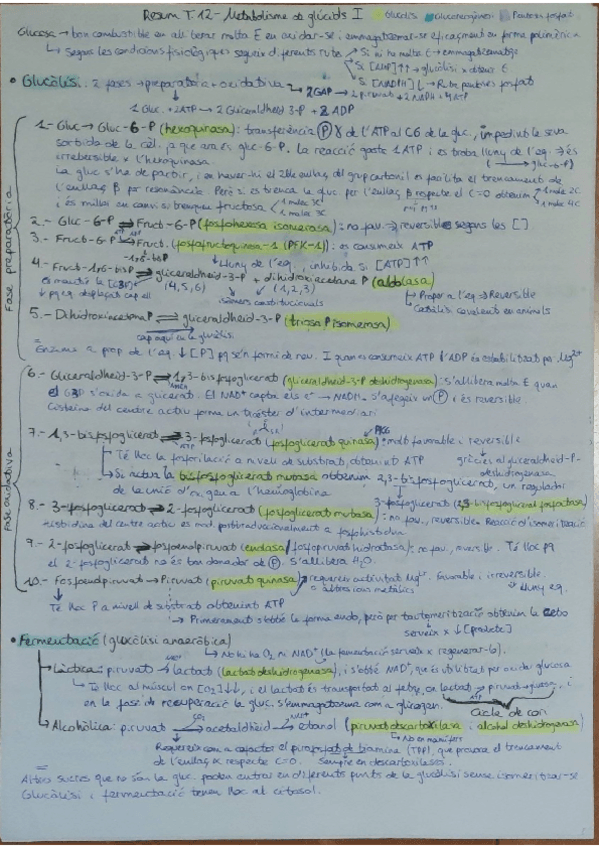 Resum T.12 - Metabolisme de glúcids I Glucòlisi Gluconeogènesi Pentoses fosfat
Glucosa → bon combustible en alliberar molta E en oxidar-se i emmagatzemar-se eficaçment en forma polimèrica
↳ Segons les condicions fisiològiques segueix diferents rutes Si hi ha molta E → emmagatzematge
Si [AMP]↑↑ → glucòlisi x obtenir E
Si [NADPH]↓ → Ruta pentoses fosfat
• Glucòlisi: 2 fases → preparatòria + oxidativa → 2GAP → 2 piruvat + 2 NADH + 4 ATP
1 Gluc. + 2ATP → 2 Gliceraldheid 3-P + 2 ADP
Fase preparatòria
1.- Gluc → Gluc-6-P (hexoquinasa): transferència Ⓟ γ de l'ATP al C6 de la gluc., impedint la seva
sortida de la cèl. ja que ara és gluc-6-P. La reacció gasta 1 ATP i es troba lluny de l'eq. → és
irreversible x l'hexoquinasa.
La gluc s'ha de partir, i en haver-hi el enllaç del grup carbonil es facilita el trencament de
l'enllaç β per ressonància. Però si es trenca la gluc per l'enllaç β respecte el C=O obtenim 1 molec 2C
1 molec 4C
i és millor en canvi si trenquem fructosa 1 molec 3C
1 molec 3C
2.- Gluc-6-P ⇌ Fruct-6-P (fosfohexosa isomerasa): no fav. → reversible segons les []
3.- Fruct-6-P → Fruct. 1,6-bisP (fosfofructoquinasa-1 (PFK-1)): es consumeix ATP
↳ Lluny de l'eq., inhibida si [ATP]↑↑
4.- Fruct-1,6-bisP ⇌ gliceraldheid-3-P + dihidroxiacetona P (aldolasa)
(4,5,6) (1,2,3)
→ Proper a l'eq → Reversible
→ Catàlisi covalent en animals
5.- DihidroxiacetonaP ⇌ gliceraldheid-3-P (triosa P isomerasa)
cap aquí en la glucòlisi
Fase oxidativa
6.- Gliceraldheid-3-P ⇌ 1,3-bisfosfoglicerat (gliceraldheid-3-P deshidrogenasa): s'allibera molta E quan
el G3P s'oxida a glicerat. El NAD⁺ capta els e⁻ → NADH. S'afegeix un Ⓟ i és reversible.
Cisteïna del centre actiu forma un tioèster d'intermediari
7.- 1,3-bisfosfoglicerat ⇌ 3-fosfoglicerat (fosfoglicerat quinasa): molt favorable i reversible
gràcies al gliceraldheid-P-
deshidrogenasa
Té lloc la fosforilació a nivell de substrat, obtenint ATP
↳ Si actua la bisfosfoglicerat mutasa obtenim 2,3-bisfosfoglicerat, un regulador
de la unió d'O₂ a l'hemoglobina
8.- 3-fosfoglicerat ⇌ 2-fosfoglicerat (fosfoglicerat mutasa): no fav., reversible. Reacció d'isomerització
Histidina del centre actiu es mod. posttraduccionalment a fosfohistidina
9.- 2-fosfoglicerat ⇌ fosfoenolpiruvat (enolasa/fosfopiruvat hidratasa): no fav., reversible. Té lloc pq
el 2-fosfoglicerat no és bon donador de Ⓟ. S'allibera H₂O.
10.- Fosfoenolpiruvat → Piruvat (piruvat quinasa) → requereix activitat Mg²⁺. Favorable i irreversible.
↳ lluny eq.
Té lloc P a nivell de substrat obtenint ATP
↳ Primerament s'obté la forma enol, però per tautomerització obtenim la ceto
serveix x ↓[producte]
• Fermentació (glucòlisi anaeròbica)
↳ No hi ha O₂ ni NAD⁺ (la fermentació serveix x regenerar-lo).
Làctica: piruvat → lactat (lactat deshidrogenasa), i s'obté NAD⁺, que és utilitzat per oxidar glucosa
↳ Té lloc al múscul on [O₂]↓↓, i el lactat és transportat al fetge, on lactat → piruvat → glucosa, i
en la fase de recuperació la gluc. s'emmagatzema com a glicogen.
Cicle de Cori
Alcohòlica: piruvat → acetaldheid → etanol (piruvat descarboxilasa i alcohol deshidrogenasa)
↳ No en mamífers
Requereix com a cofactor el pirofosfat de tiamina (TPP), que provoca el trencament
de l'enllaç α respecte C=O. Sempre en descarboxilació.
Altres sucres que no són la gluc. poden entrar en diferents punts de la glucòlisi sense isomeritzar-se
Glucòlisi i fermentació tenen lloc al citosol.